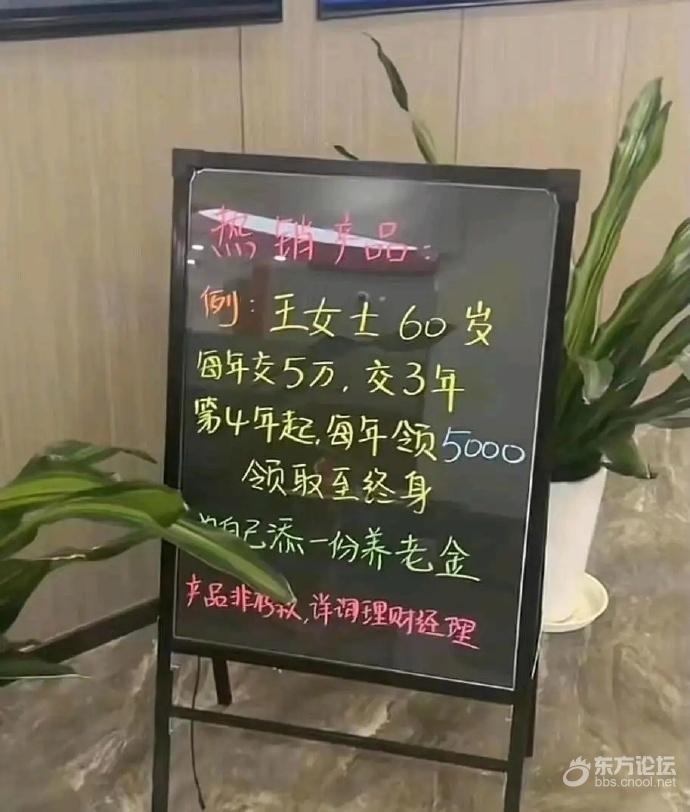 热销产品:
例:王女士 60岁
每年交5万,交3年
第4年起,每年领5000
领取至终身
自己添一份养老金
产品非存款,详询理财经理
东方论坛
bbs.cnool.net